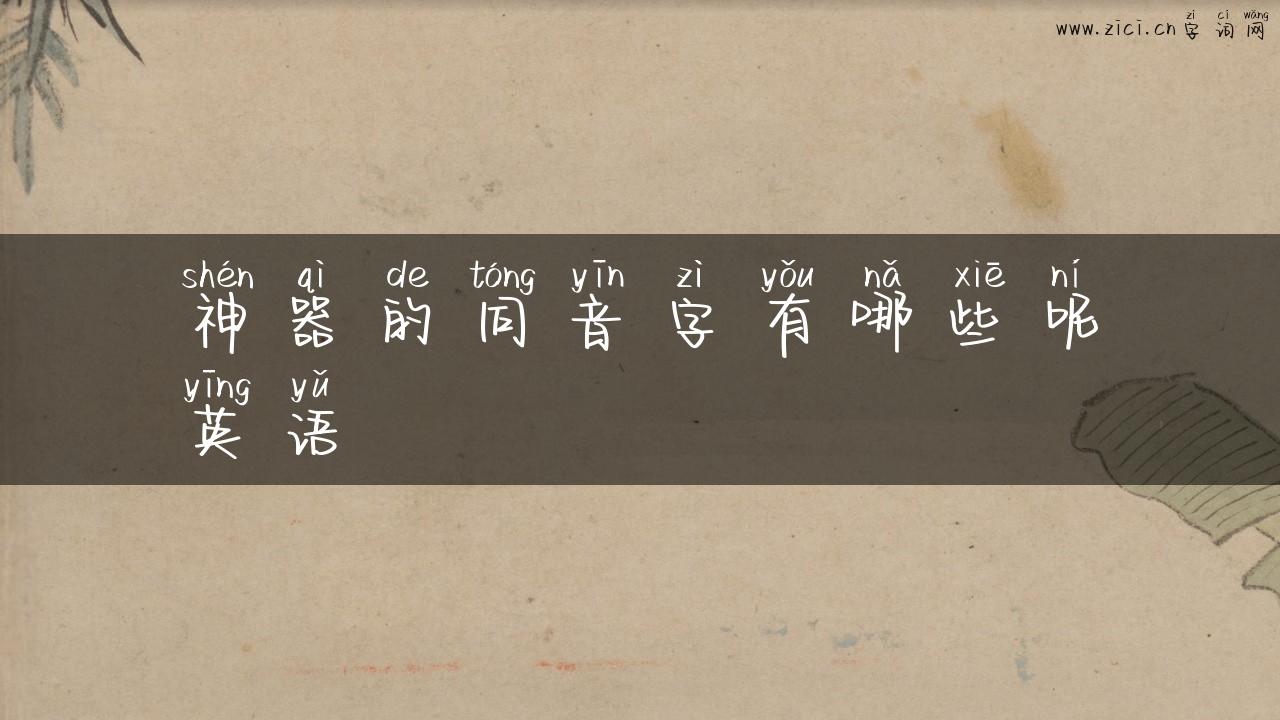 zì cí wǎng
www.zici.cn 字词网
shén qì de tóng yīn zì yǒu nǎ xiē ní
神器的同音字有哪些呢
yīng yǔ
英语